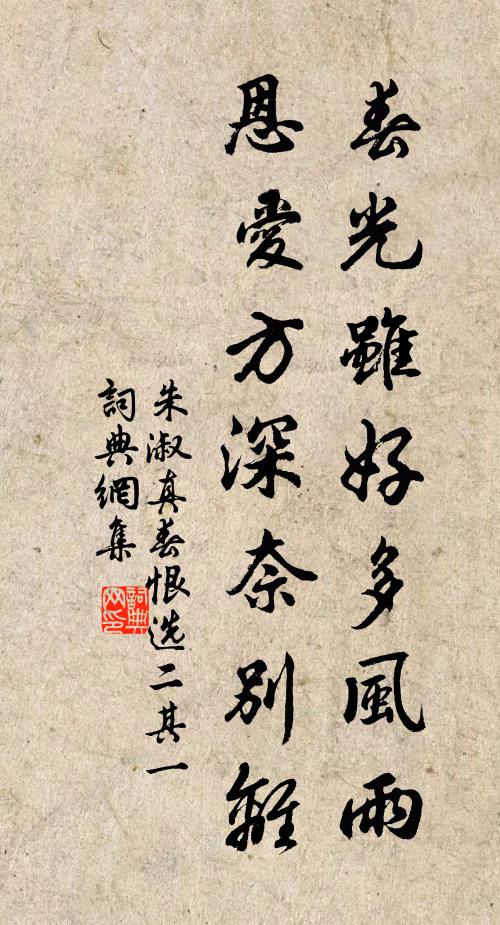 春光雖好多風雨
恩愛方深奈別離
朱淑真春恨选二其一
詞典網集
詞典网印